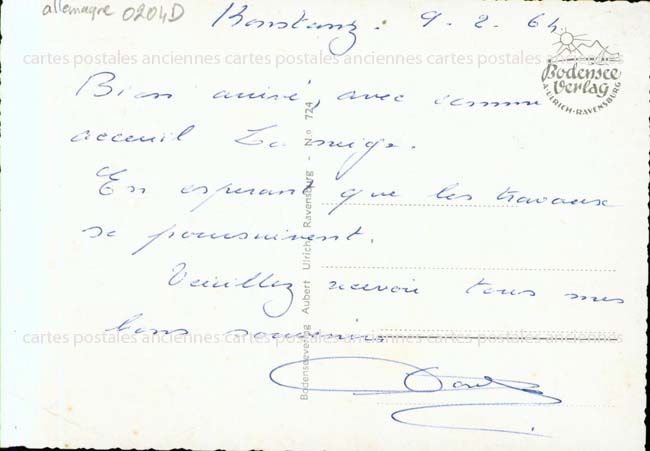 allemagne 0204D
Konstanz. 9. 2. 64.
cartes postales anciennes cartes postales anciennes cartes postales anciennes
Bodensee
Verlag
A. ULRICH - RAVENSBURG
Bien arrivé, avec comme
acceuil La neige.
En esperant que les travaux
se poursuivent.
Veuillez recevoir tous mes
bons souvenirs
cartes postales anciennes cartes postales anciennes cartes postales anciennes
Bodenseeverlag Aubert Ulrich Ravensburg - No 724